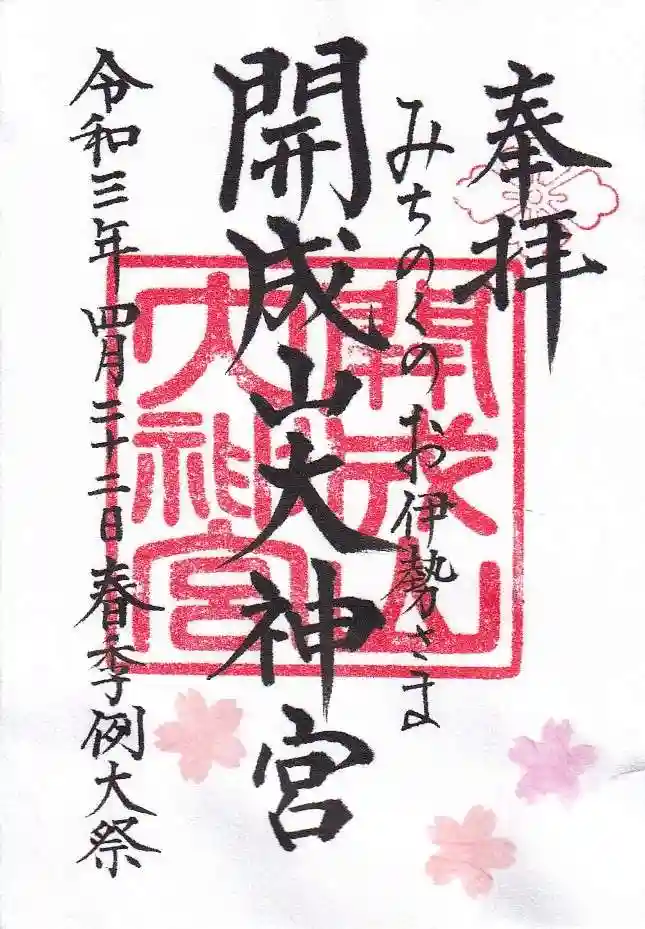 奉拝
みちのくのお伊勢さま
開成山大神宮
令和三年四月二十二日春季例大祭
開成山
大神宮